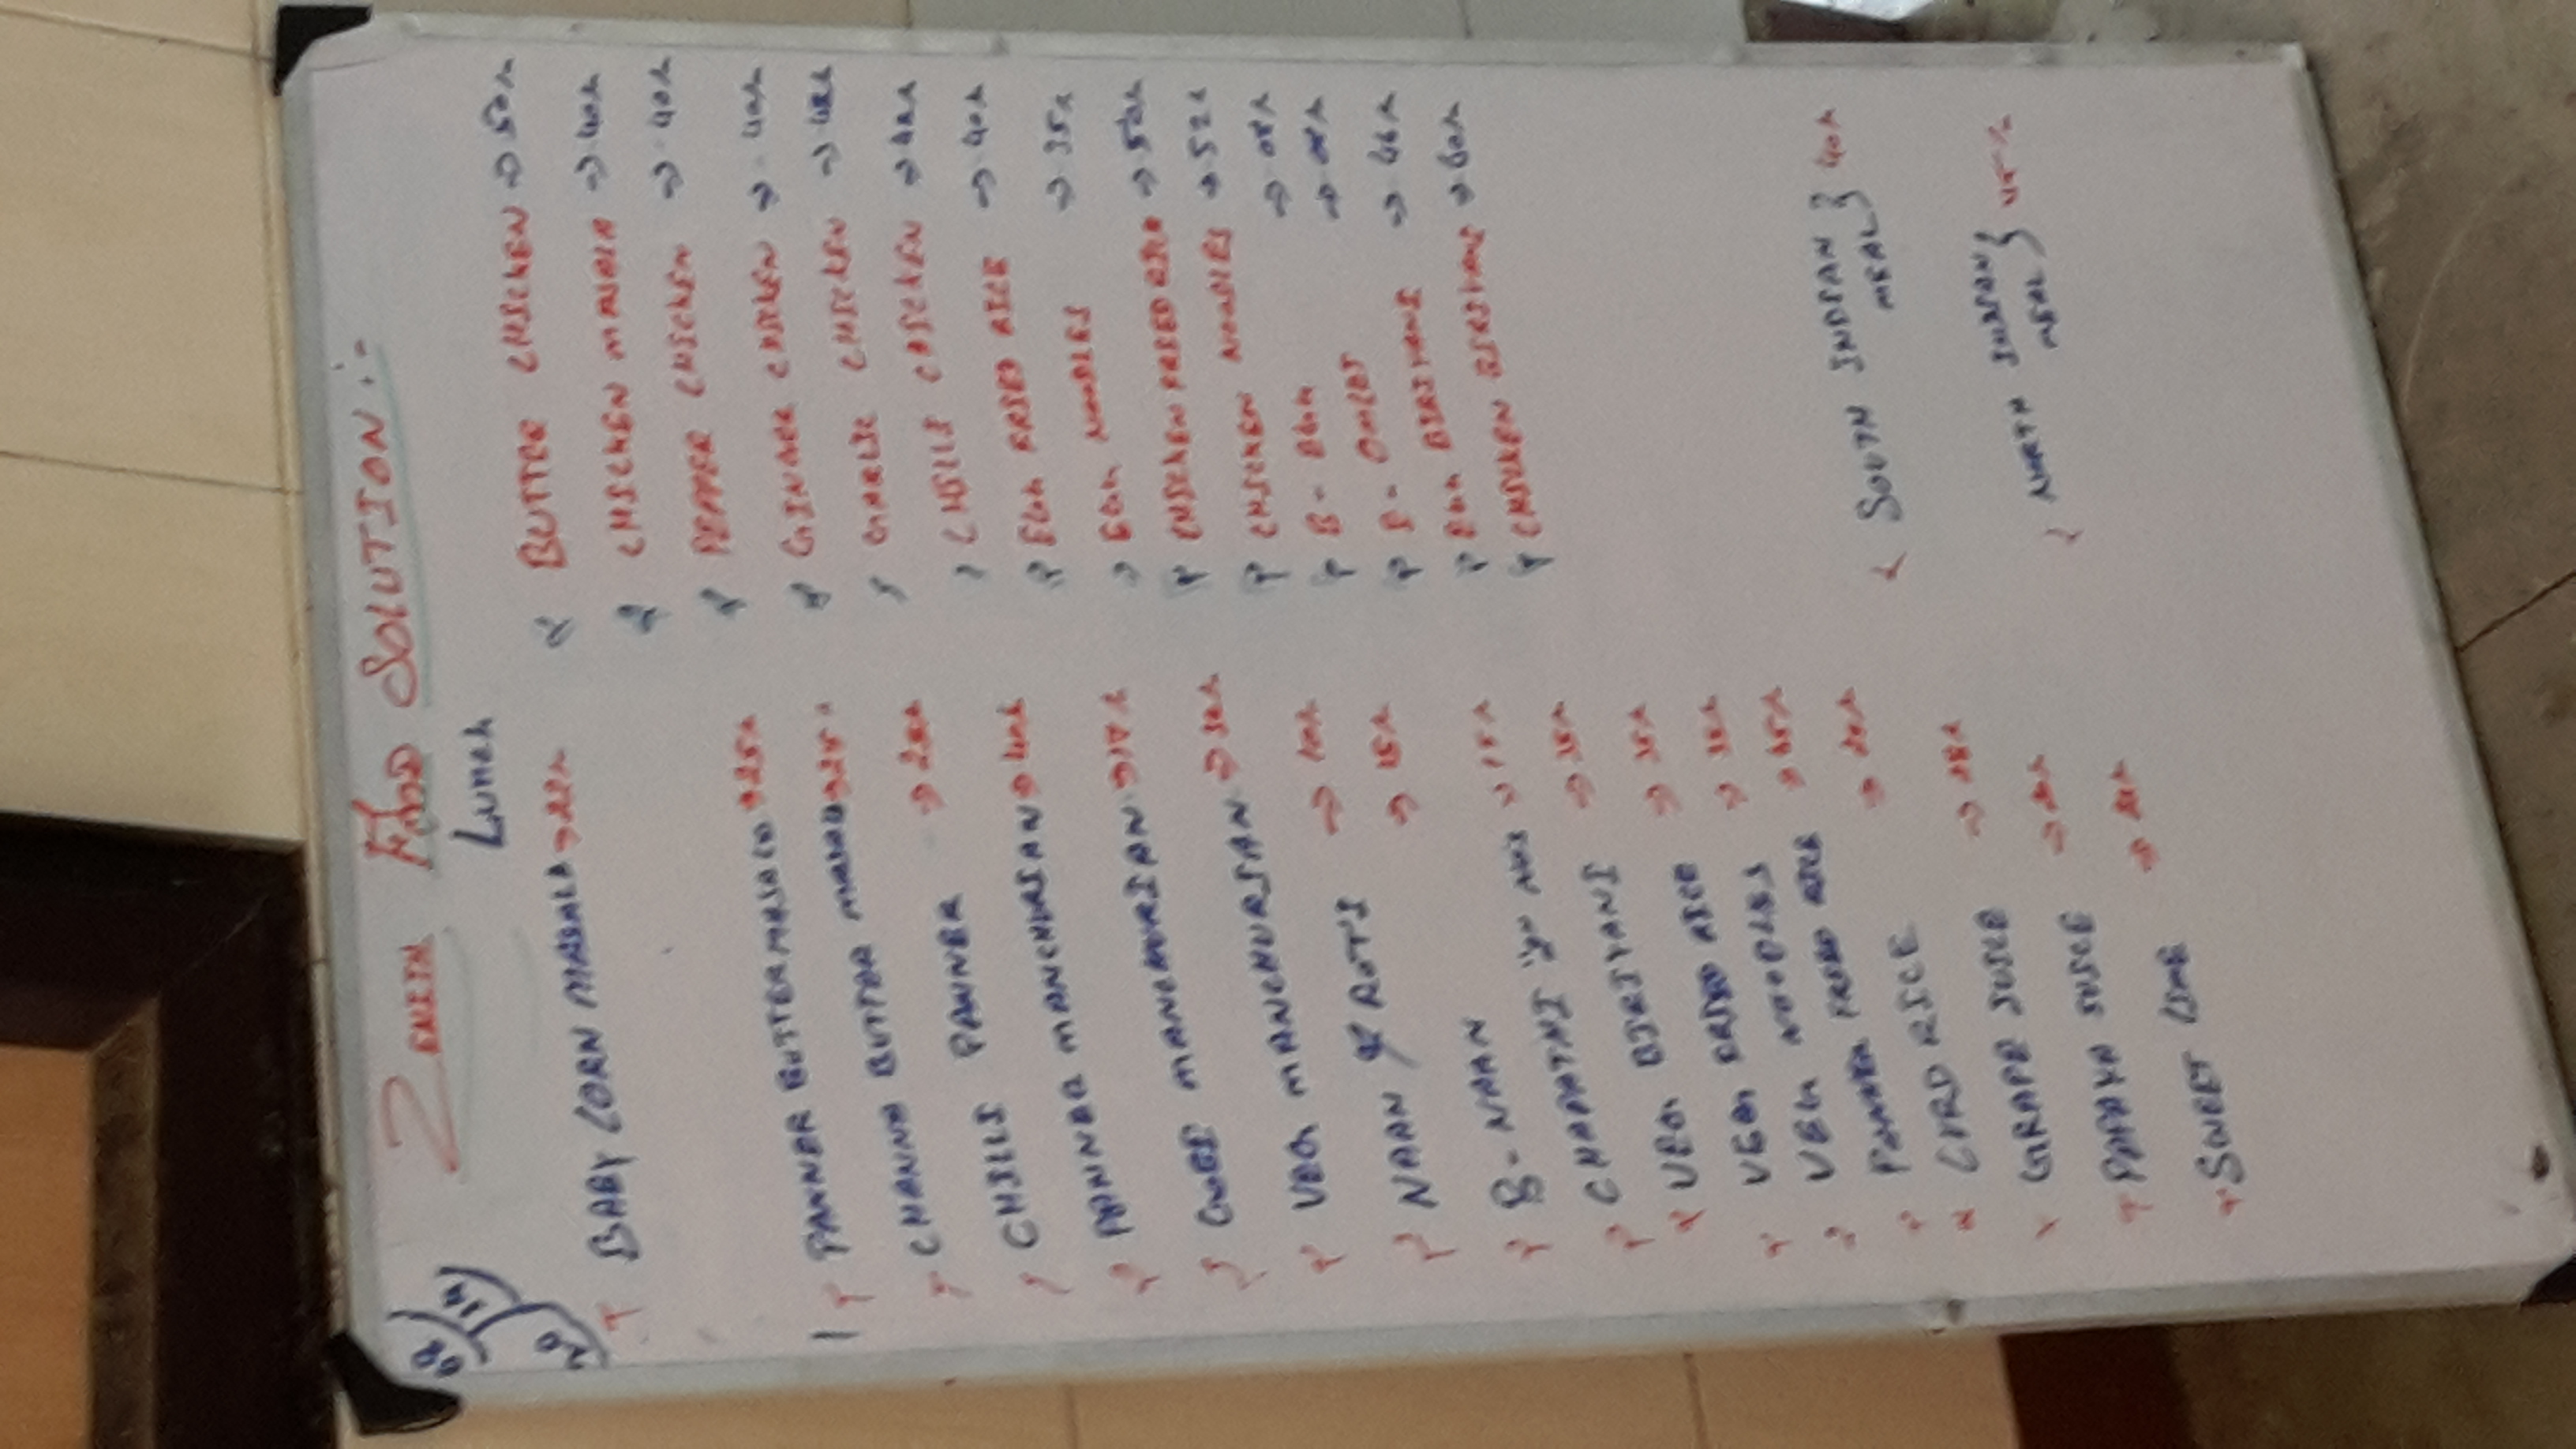 ZENITH FOOD SOLUTION :-
Lunch
68
14
20
BABY CORN MASALA → 22/-
PANNER BUTTER MASALA → 25/-
CHANNA BUTTER MASALA → 25
CHILLI PANNER →
PANNER MANCHURIAN → 40/-
GOBI MANCHURIAN →
VEG MANCHURIAN → 30/-
NAAN & ROTI → 10/-
B - NAAN → 15/-
CHAPATHI "2" NOS →
VEG BIRIYANI → 35/-
VEG FRIED RICE → 35/-
VEG NOODLES →
PANNER FRIED RICE → 45/-
CURD RICE → 20/-
GRAPE JUICE →
PAPAYA JUICE →
SWEET LIME →
BUTTER CHICKEN → 50/-
CHICKEN MASALA → 40/-
PEPPER CHICKEN → 40/-
GINGER CHICKEN → 40/-
GARLIC CHICKEN →
CHILLI CHICKEN →
EGG FRIED RICE → 40/-
EGG NOODLES → 35/-
CHICKEN FRIED RICE → 50/-
CHICKEN NOODLES → 52/-
B - EGG → 08/-
B - OMLET → 08/-
EGG BIRIYANI → 46/-
CHICKEN BIRIYANI → 60/-
SOUTH INDIAN MEAL } 40/-
NORTH INDIAN MEAL } 45/-